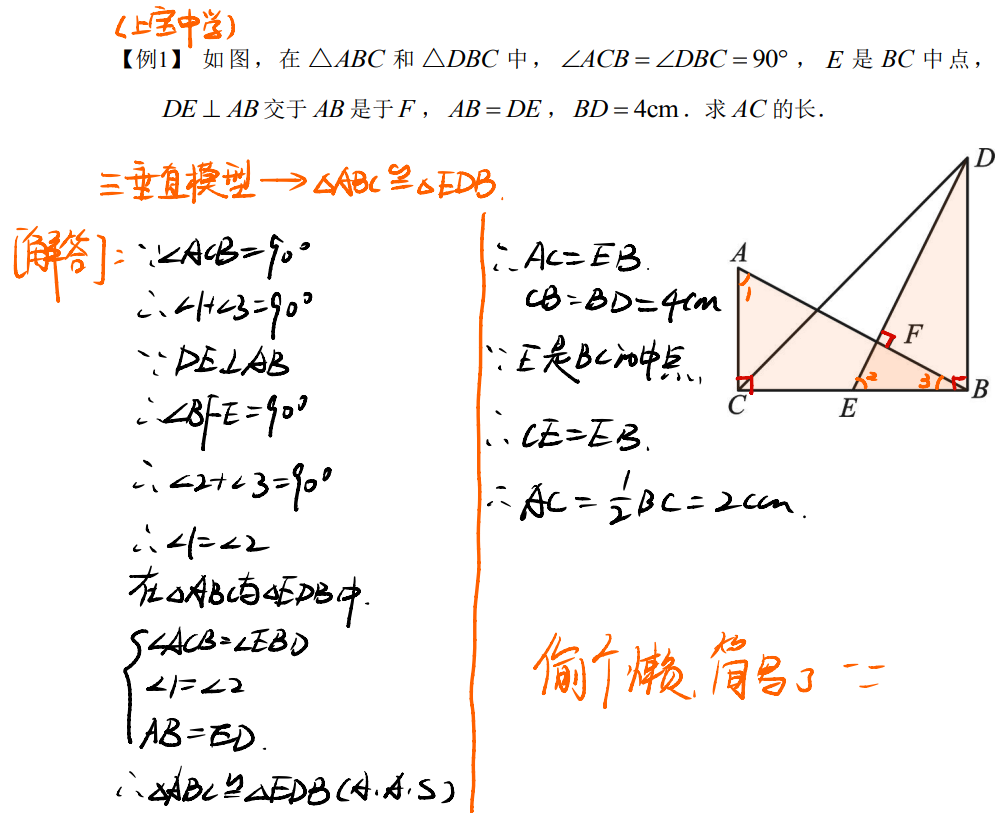 (上宝中学)
【例1】 如图，在 △ABC 和 △DBC 中， ∠ACB = ∠DBC = 90° ， E 是 BC 中点，
DE ⊥ AB 交于 AB 是于 F ， AB = DE ， BD = 4cm ．求 AC 的长．
三垂直模型 → △ABC ≌ △EDB.
[解答]: ∵∠ACB=90°
∴∠1+∠3=90°
∵DE⊥AB
∴∠BFE=90°
∴∠2+∠3=90°
∴∠1=∠2
在△ABC与△EDB中.
∠ACB=∠EBD
∠1=∠2
AB=ED.
∴△ABC≌△EDB(A.A.S)
∴AC=EB.
CB=BD=4cm
∵E是BC的中点.
∴CE=EB.
∴AC=1/2BC=2cm.
D
A
1
F
2
3
C
E
B
偷个懒,简写了